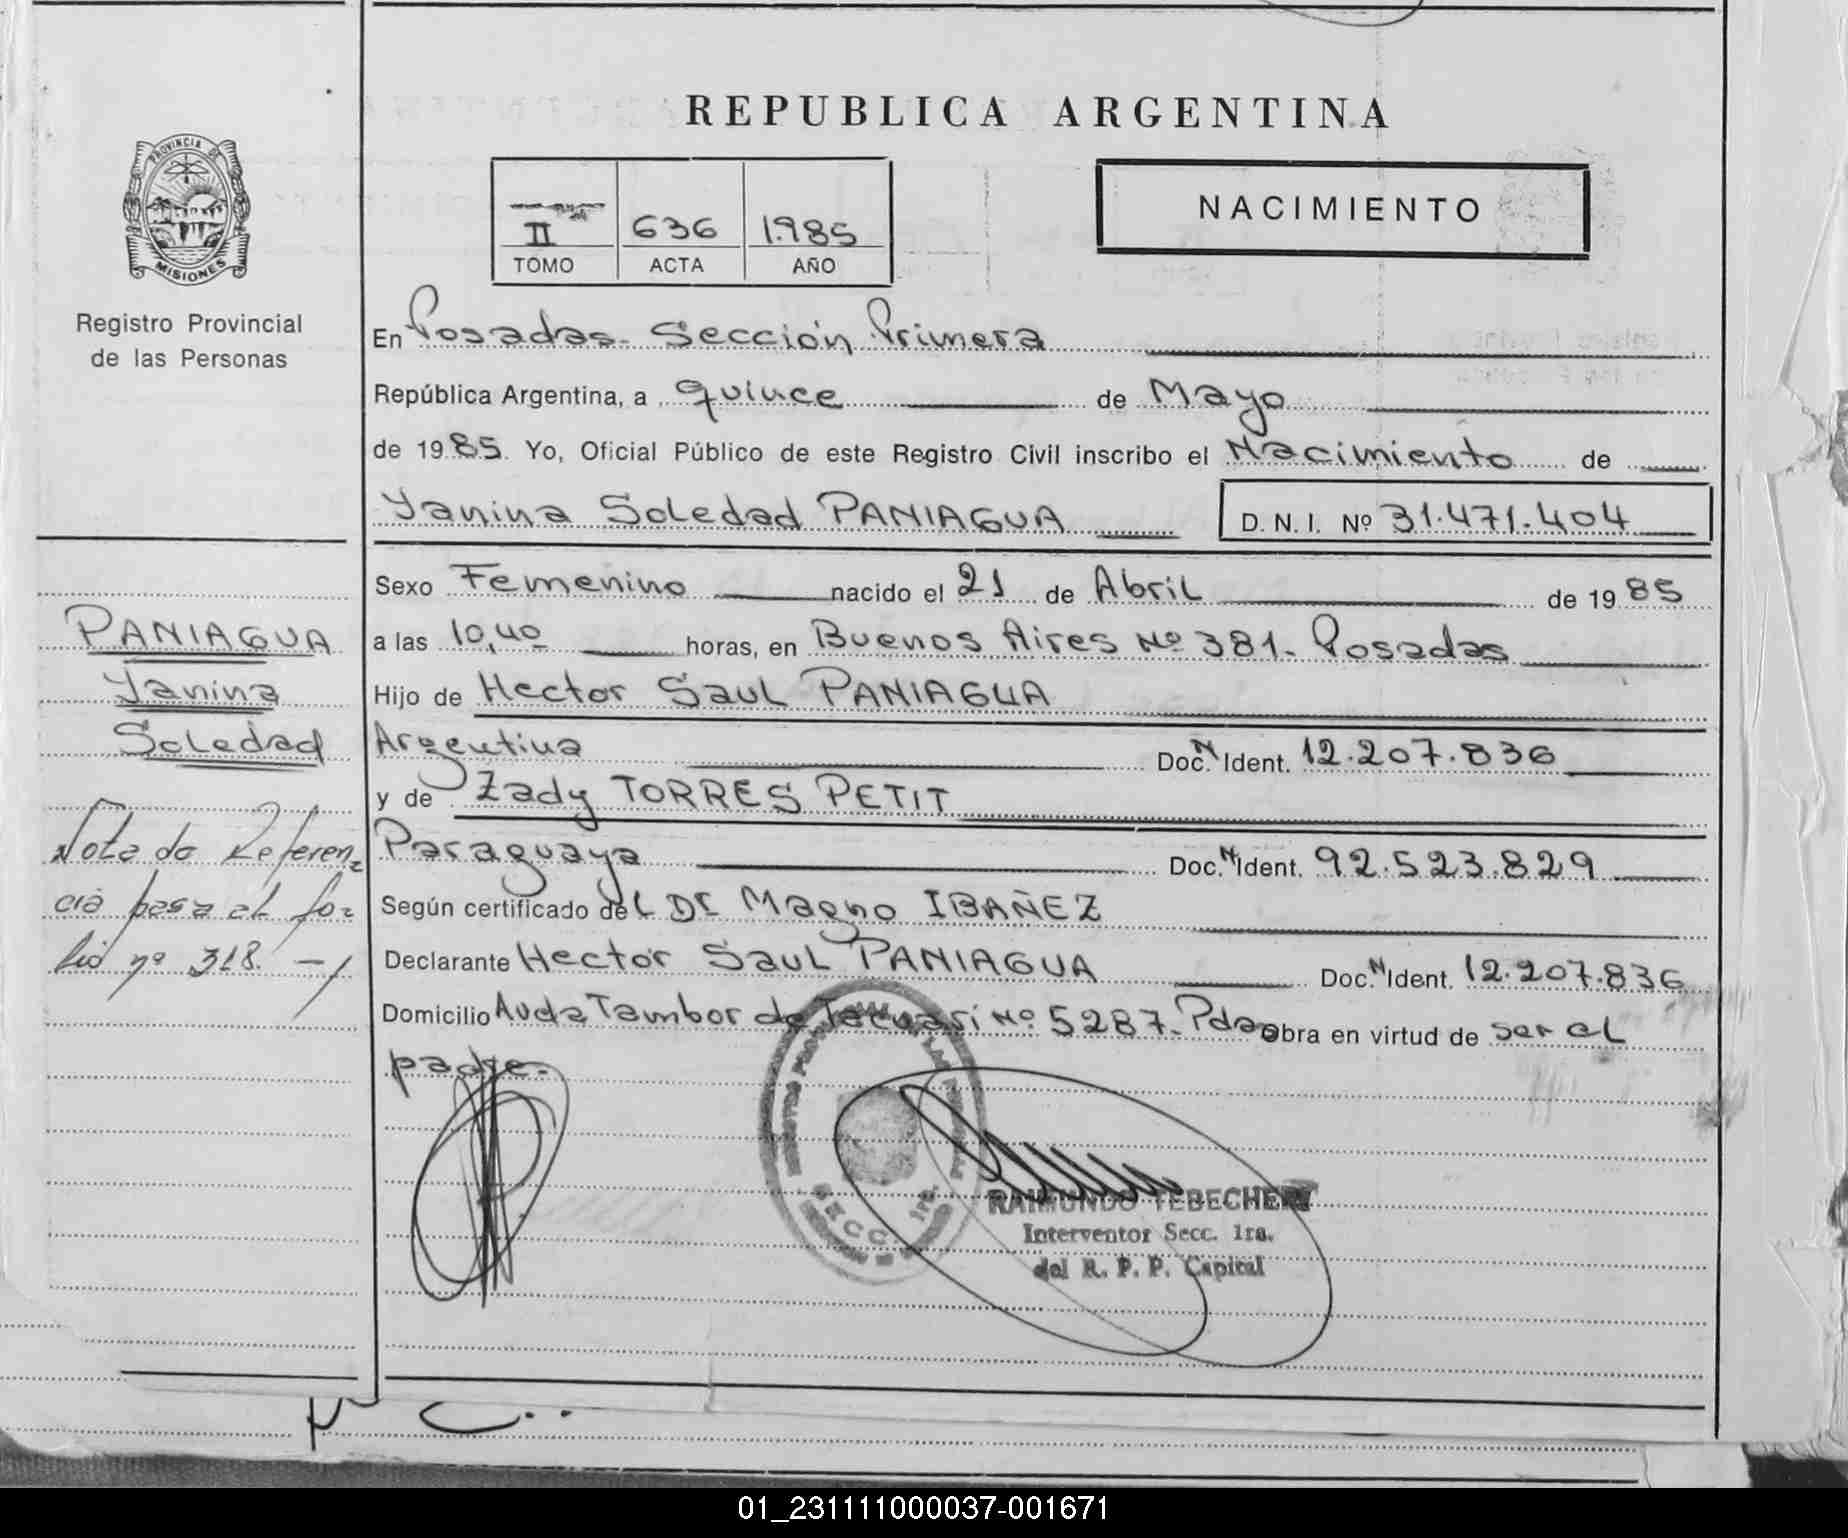 REPUBLICA ARGENTINA
PROVINCIA DE
MISIONES
Registro Provincial
de las Personas
II 636 1.985
TOMO ACTA AÑO
NACIMIENTO
En Posadas. Sección Primera
República Argentina, a quince de Mayo
de 1985. Yo, Oficial Público de este Registro Civil inscribo el Nacimiento de
Yanina Soledad PANIAGUA
D. N. I. Nº 31.471.404
Sexo Femenino nacido el 21 de Abril de 1985
a las 10,40 horas, en Buenos Aires Nº 381. Posadas
Hijo de Hector Saul PANIAGUA
Argentina Doc.N Ident. 12.207.836
y de Zady TORRES PETIT
Paraguaya Doc.N Ident. 92.523.829
Según certificado del Dr Magno IBAÑEZ
Declarante Hector Saul PANIAGUA Doc.N Ident. 12.207.836
Domicilio Avda Tambor de Tacuari Nº 5287. Pdas obra en virtud de ser el
padre.
PANIAGUA
Yanina
Soledad
Nota de Referen
cia pasa al fo=
lio nº 318. -/
SECC 1ra.
RAIMUNDO TEBECHERY
Interventor Secc. 1ra.
del R. P. P. Capital
01_231111000037-001671